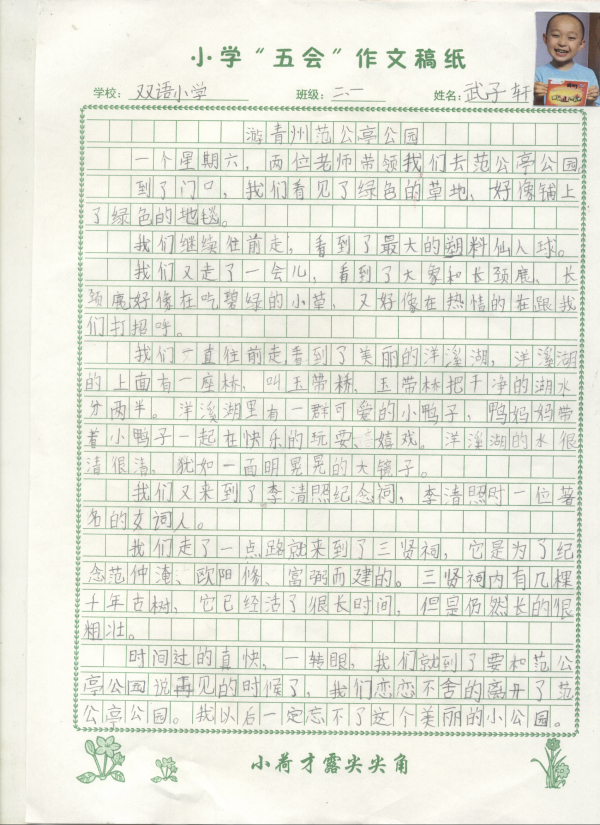 小学“五会”作文稿纸
学校：双语小学 班级：二.一 姓名：武子轩
游青州范公亭公园
一个星期六，两位老师带领我们去范公亭公园
到了门口，我们看见了绿色的草地，好像铺上
了绿色的地毯。
我们继续往前走，看到了最大的塑料仙人球。
我们又走了一会儿，看到了大象和长颈鹿，长
颈鹿好像在吃碧绿的小草，又好像在热情的在跟我
们打招呼。
我们一直往前走看到了美丽的洋溪湖，洋溪湖
的上面有一座桥，叫玉带桥，玉带桥把干净的湖水
分两半。洋溪湖里有一群可爱的小鸭子，鸭妈妈带
着小鸭子一起在快乐的玩耍嬉戏。洋溪湖的水很
清很清，犹如一面明晃晃的大镜子。
我们又来到了李清照纪念祠，李清照时一位著
名的女词人。
我们走了一点路就来到了三贤祠，它是为了纪
念范仲淹、欧阳修、富弼而建的。三贤祠内有几棵
千年古树，它已经活了很长时间，但是仍然长的很
粗壮。
时间过的真快，一转眼，我们就到了要和范公
亭公园说再见的时候了，我们恋恋不舍的离开了范
公亭公园。我以后一定忘不了这个美丽的小公园。
小荷才露尖尖角